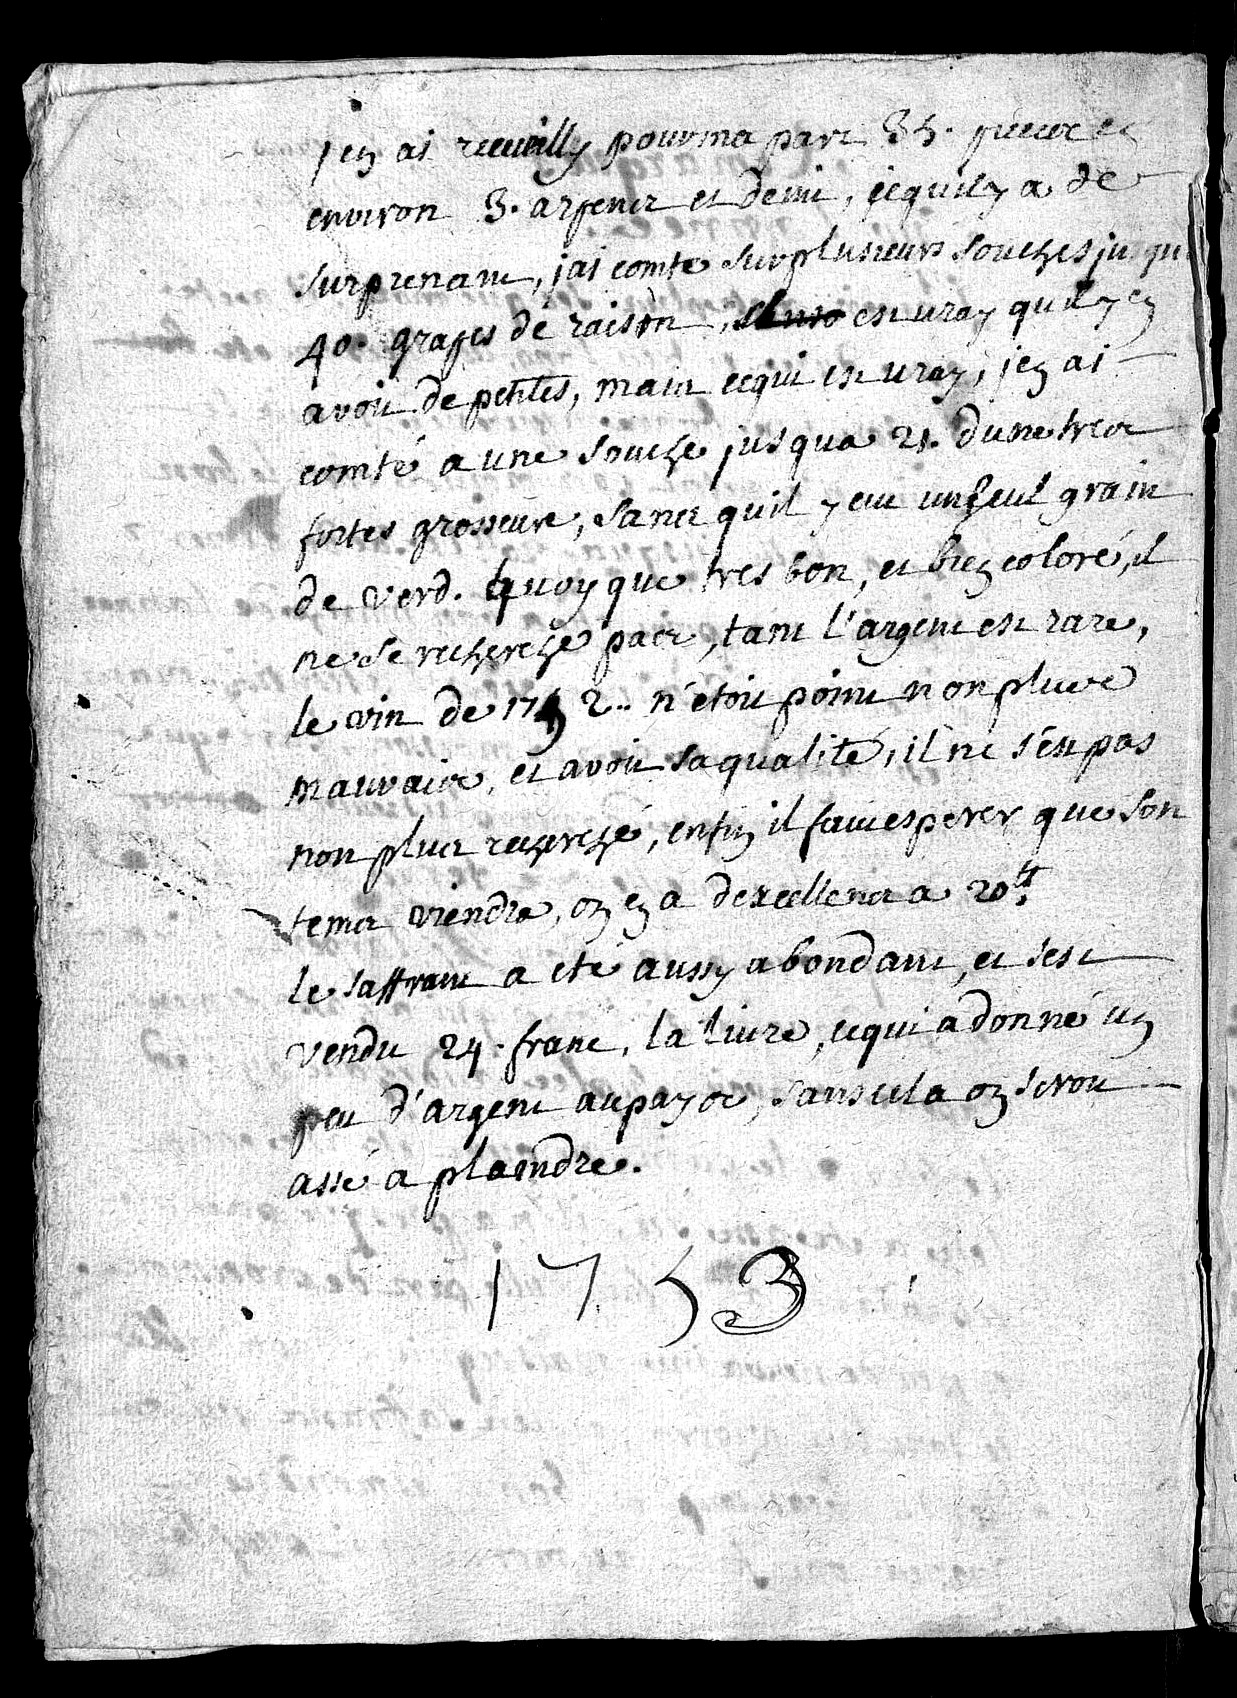 jen ai recueilly pour ma part 35. pieces en
environ 3. arpents et demi, cequil y a de
surprenant, jai comté sur plusieurs souches jusqu
40. grapes de raison, il est vray quil y en
avoit de petites, mais cequi est vray, jen ai
comté a une souche jusqua 21. dune tres
fortes grosseure, sans quil y eut un seul grain
de verd. quoy que tres bon, et bien coloré, il
ne se recherche pas, tant l'argent est rare,
le vin de 1752.. n'étoit point non plus
mauvais, et avoit sa qualité, il ne s'est pas
non plus recherché, enfin il faut esperer que son
tems viendra, on en a dexcellent a 20lt.
le saffrant a été aussy abondant, et sest
vendu 24. franc, la livre, cequi a donné un
peu d'argent au pays, sans cela on seroit
assé a plaindre.
1753